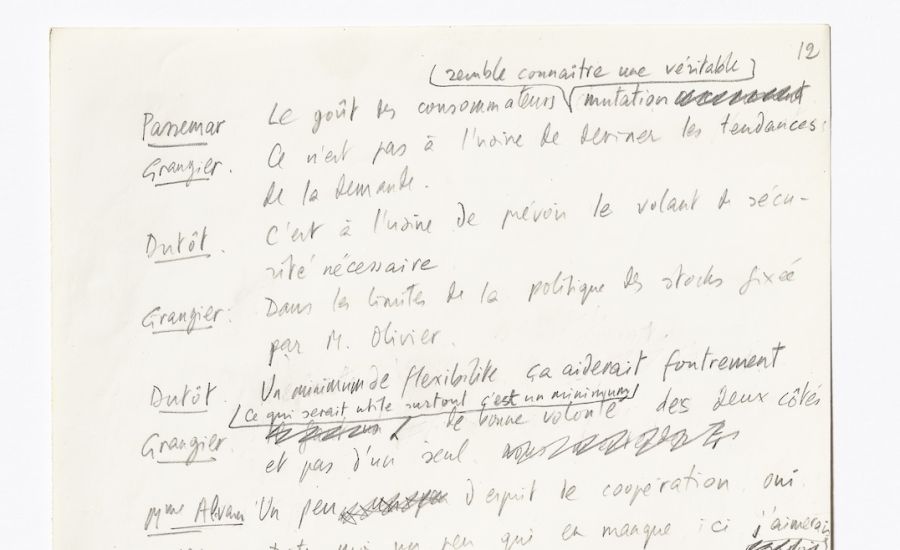 12
(semble connaître une véritable)
Passemar Le goût des consommateurs mutation
Grangier. Ce n'est pas à l'usine de deviner les tendances
de la demande.
Dutôt. C'est à l'usine de prévoir le volant de sécu-
rité nécessaire
Grangier: Dans les limites de la politique des stocks fixée
par M. Olivier.
Dutôt. Un minimum de flexibilité ça aiderait foutrement
(ce qui serait utile surtout c'est un minimum)
Grangier de bonne volonté des deux côtés
et pas d'un seul. nous
Mme Alvan Un peu d'esprit de coopération oui
un peu qui en manque ici j'aimerais